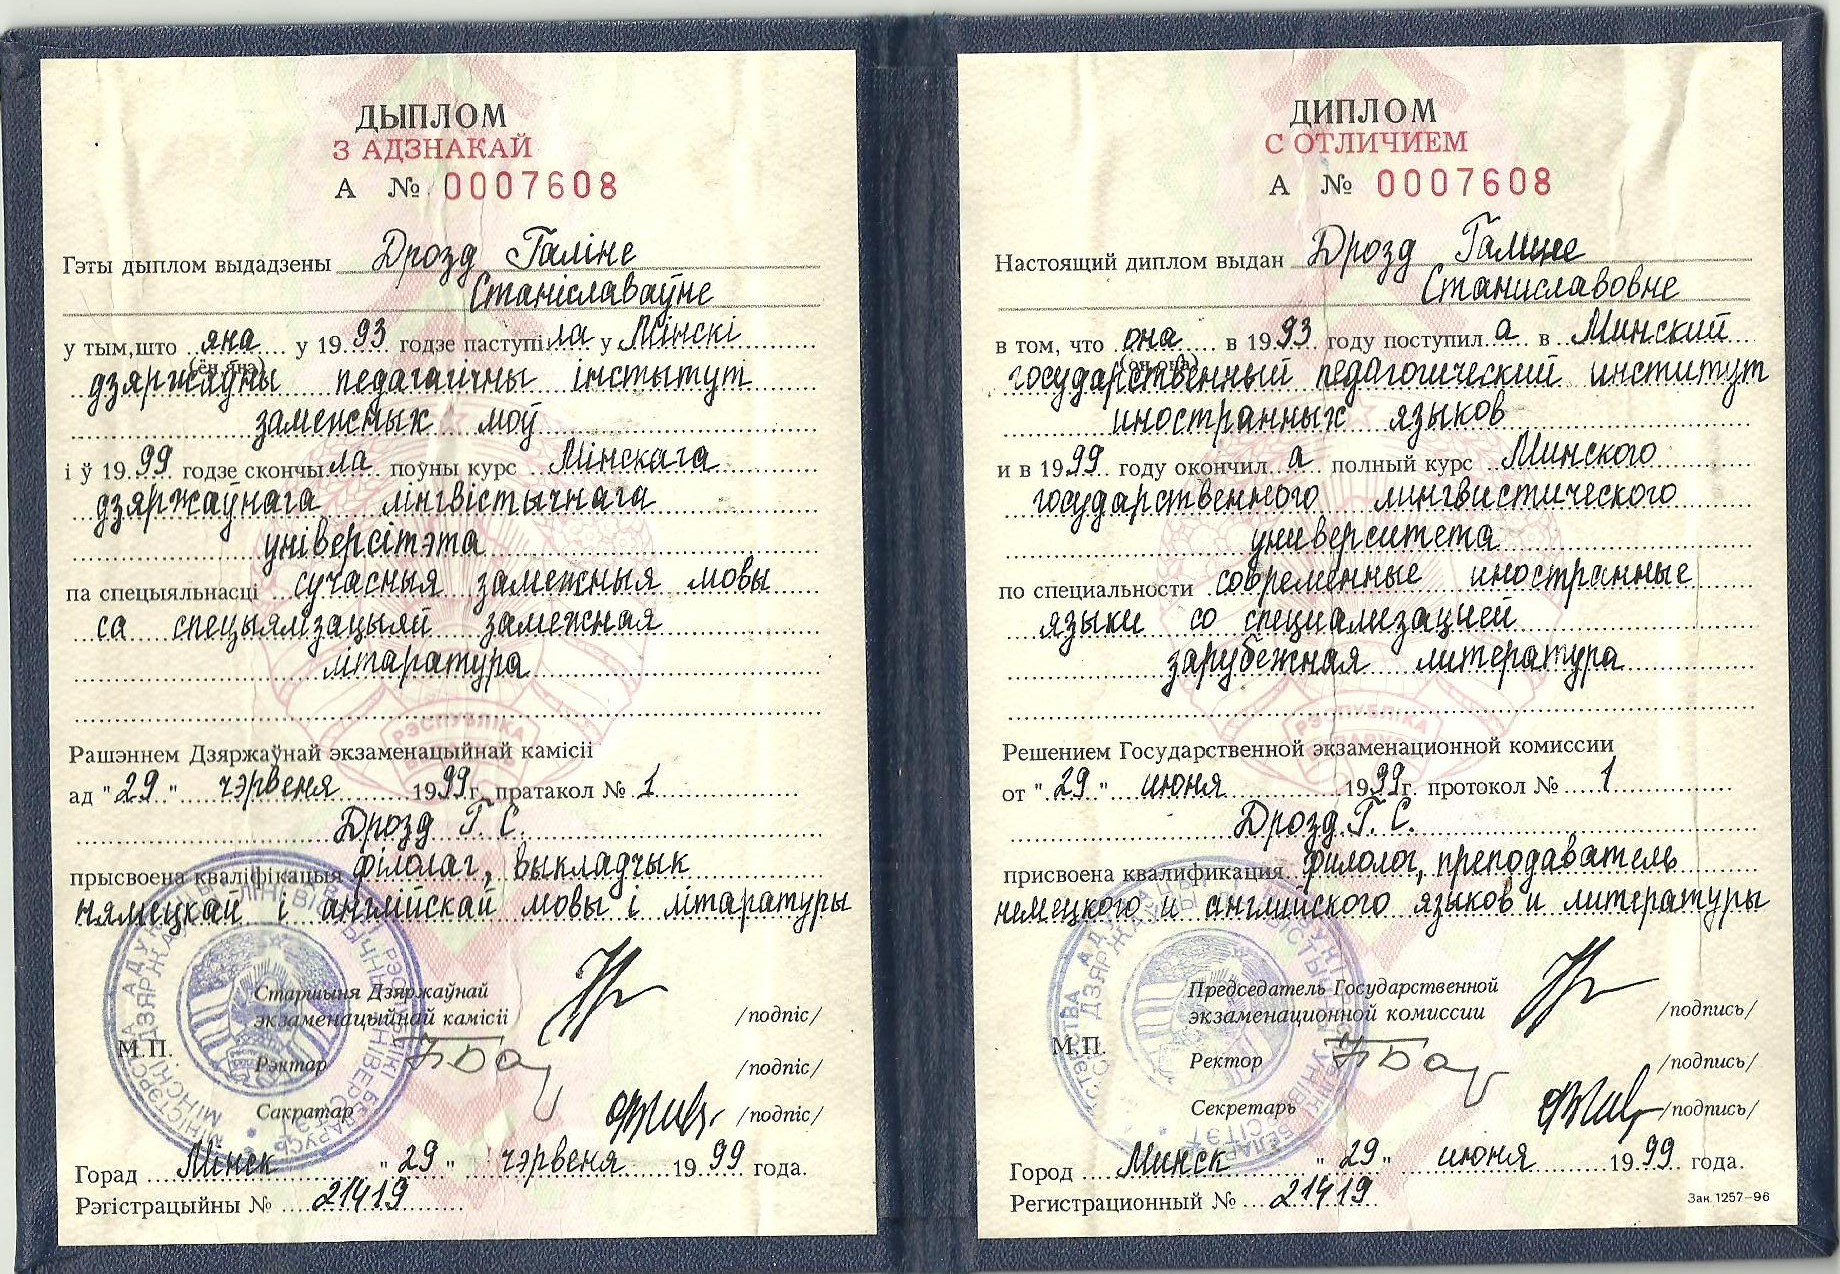 ДЫПЛОМ
З АДЗНАКАЙ
А № 0007608
Гэты дыплом выдадзены Дрозд Галіне
Станіславаўне
у тым, што яна у 1993 годзе паступіла у Мінскі
(ён, яна)
дзяржаўны педагагічны інстытут
замежных моў
і ў 1999 годзе скончыла поўны курс Мінскага
дзяржаўнага лінгвістычнага
універсітэта
па спецыяльнасці сучасныя замежныя мовы
са спецыялізацыяй замежная
літаратура
Рашэннем Дзяржаўнай экзаменацыйнай камісіі
ад "29" чэрвеня 1999г. пратакол № 1
Дрозд Г. С.
прысвоена кваліфікацыя філолаг, выкладчык
нямецкай і англійскай мовы і літаратуры
Старшыня Дзяржаўнай
экзаменацыйнай камісіі /подпіс/
М.П.
Рэктар /подпіс/
Сакратар /подпіс/
Горад Мінск "29" чэрвеня 1999 года.
Рэгістрацыйны № 21419
ДИПЛОМ
С ОТЛИЧИЕМ
А № 0007608
Настоящий диплом выдан Дрозд Галине
Станиславовне
в том, что она в 1993 году поступила в Минский
(он, она)
государственный педагогический институт
иностранных языков
и в 1999 году окончила полный курс Минского
государственного лингвистического
университета
по специальности современные иностранные
языки со специализацией
зарубежная литература
РЭСПУБЛІКА
Решением Государственной экзаменационной комиссии
от "29" июня 1999г. протокол № 1
Дрозд Г. С.
присвоена квалификация филолог, преподаватель
немецкого и английского языков и литературы
Председатель Государственной
экзаменационной комиссии /подпись/
М.П.
Ректор /подпись/
Секретарь /подпись/
Город Минск "29" июня 1999 года.
Регистрационный № 21419
Зак. 1257–96